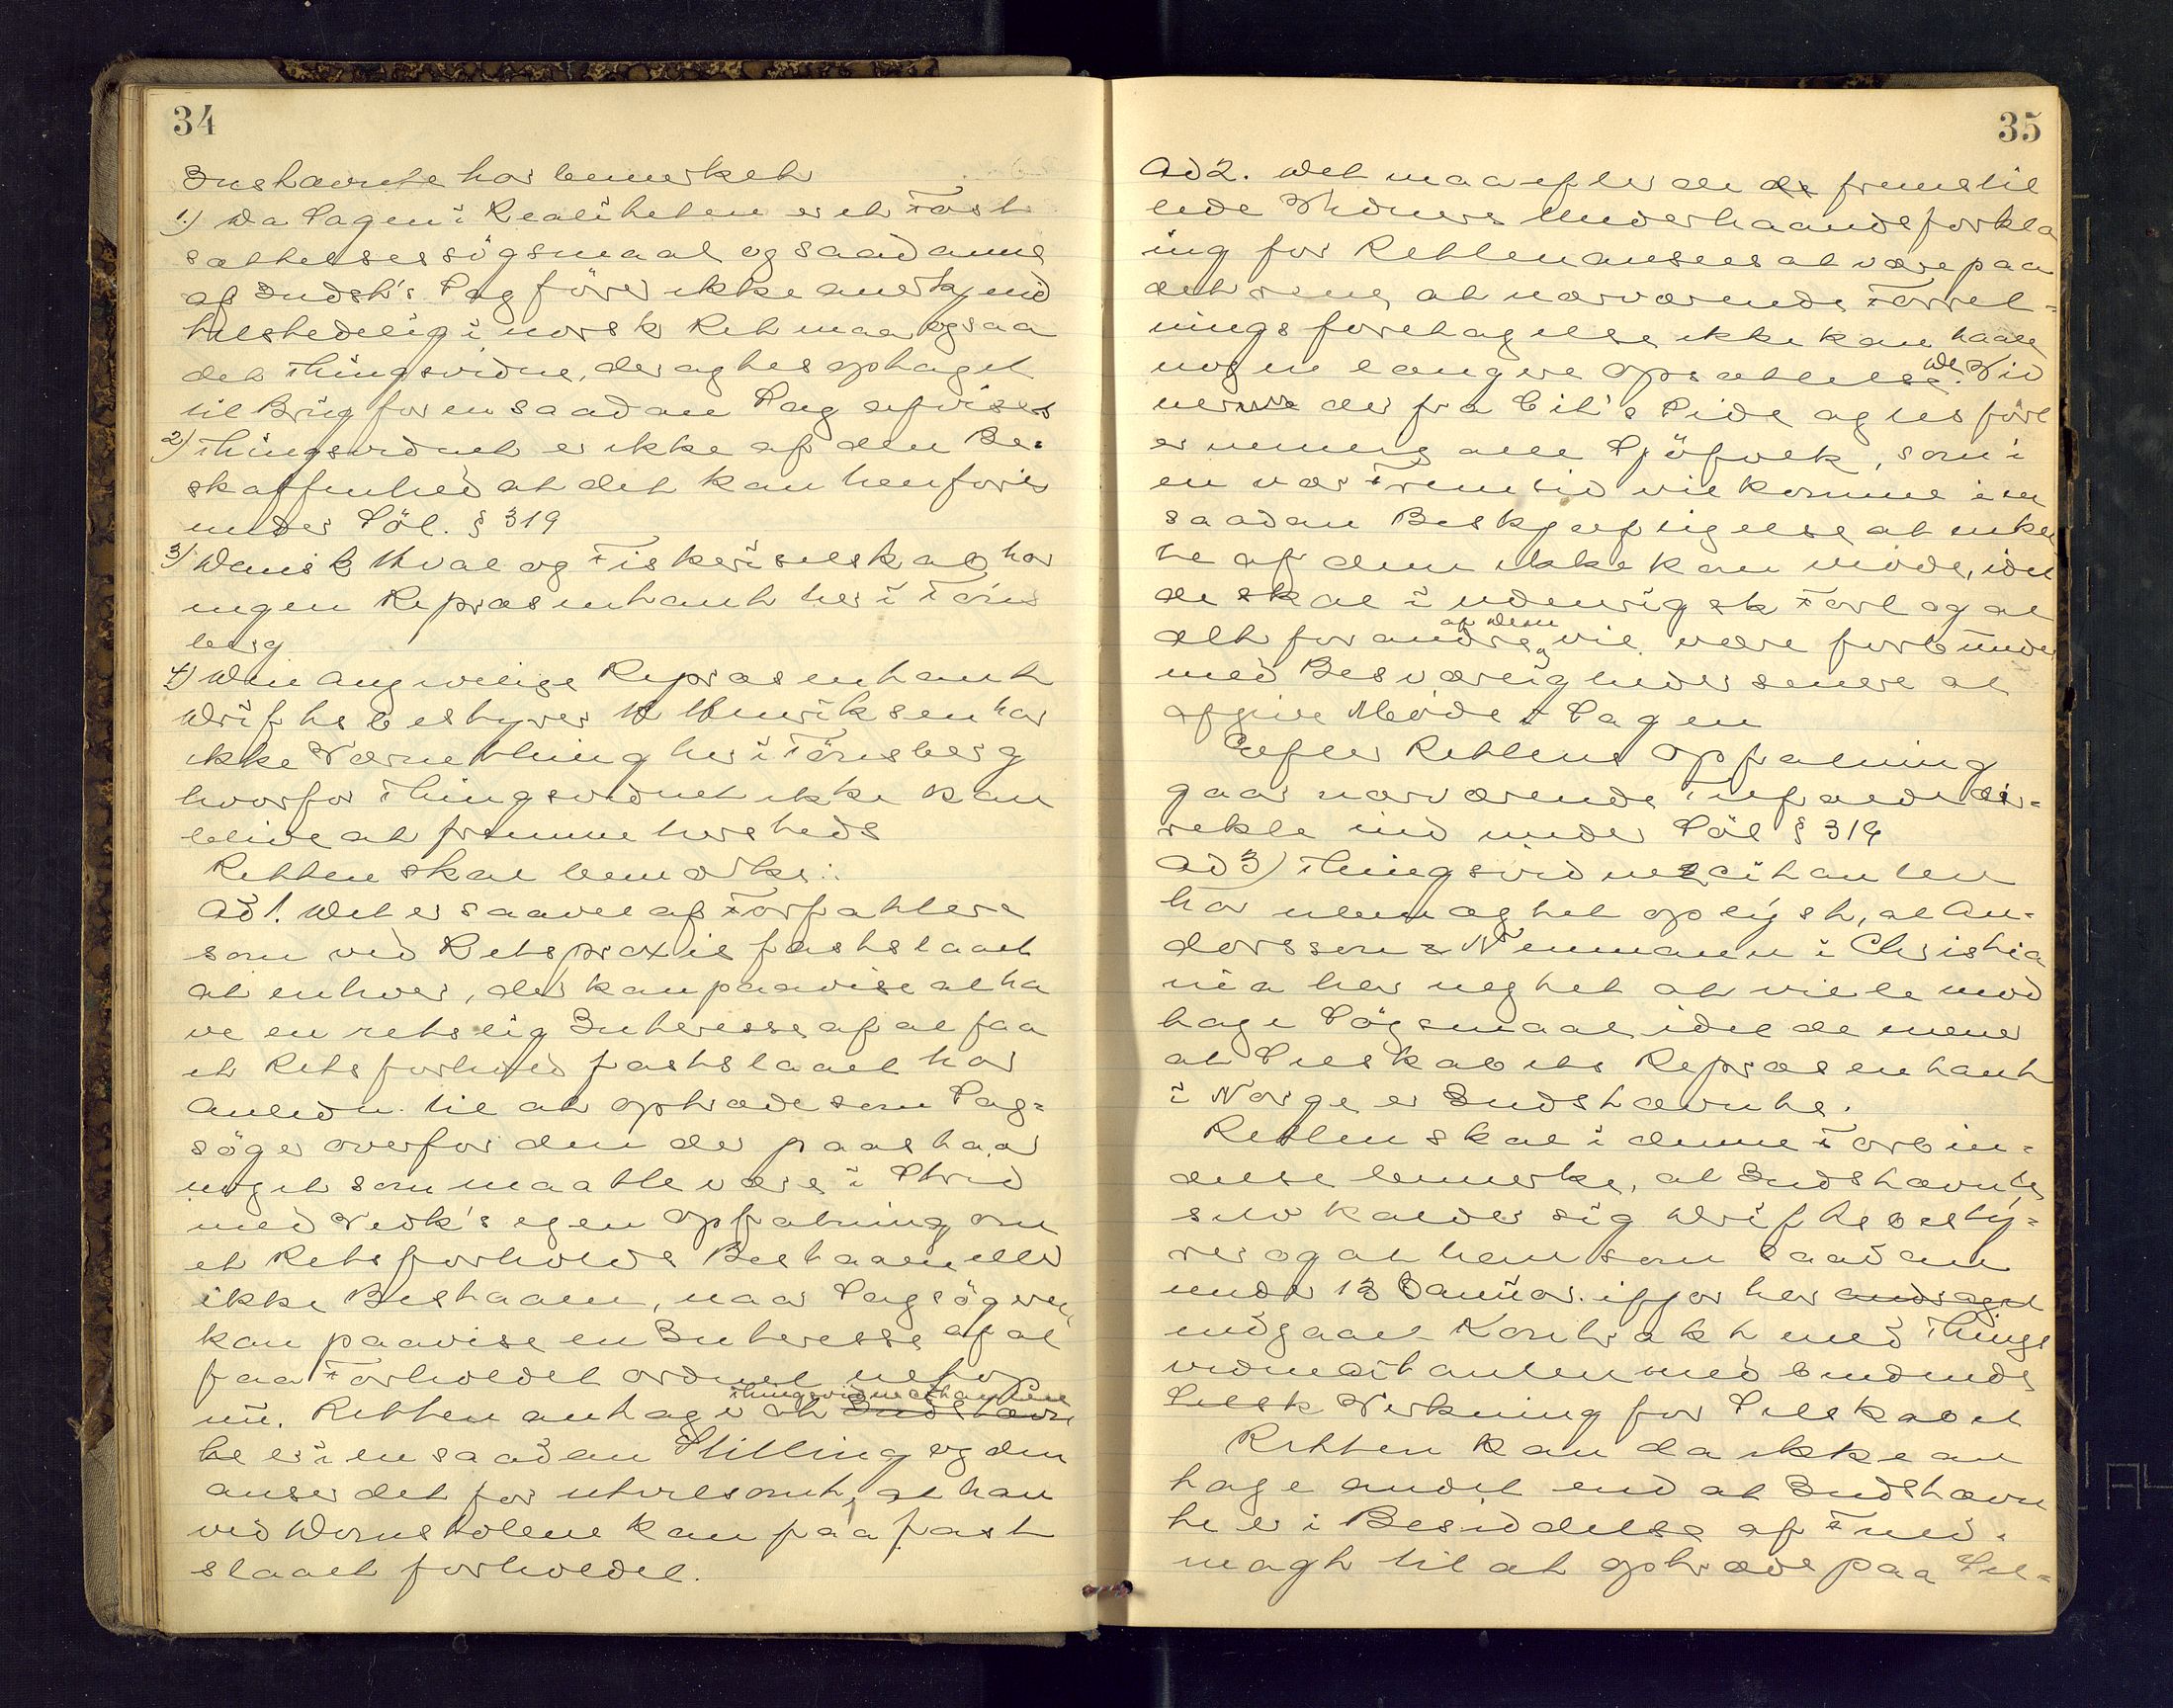 34
Indstævnte har bemerket
1.) Da Sagen i Realiteten er et Fast
sættelsessögsmaal og saadanne
af Indst's Sagförer ikke anerkjend
tilstedelig i norsk Ret maa ogsaa
det Thingsvidne, der agtes optaget
til Brug for en saadan Sag afvises
2) Thingsvidnet er ikke af den Be-
skaffenhed at det kan henföres
under Söl. § 319
3) Dansk Hval og Fiskeriselskab har
ingen Repræsentant her i Töns
berg
4) Den angivelige Repræsentant
Driftsbestyrer N Henriksen har
ikke Værnething her i Tönsberg
hvorfor Thingsvidnet ikke kan
blive at fremme hersteds
Retten skal bemærke:
Ad 1. Det er saavel af Forfattere
som ved Retspraxis fastslaaet
at enhver, der kan paavise at ha
ve en retslig Interesse af at faa
et Retsforhold fastslaaet har
Anledn. til at optræde som Sag-
söger overfor den der paastaar
noget som maatte være i Strid
med Vedk's egen Opfatning om
et Retsforholds Bestaaen eller
ikke Bestaaen, naar Sagsögeren
kan paavise en Interesse af at
faa Forholdet ordnet netop
Thingsvidnecitanten
nu. Retten antager at Indstævn
te er i en saadan Stilling og den
anser det for utvilsomt, at han
ved Domstolene kan faa fast
slaaet forholdet.
35
Ad 2. Det maa efter de de fremstil
lede Vidners Underhaandsforkla
ing for Retten ansees at være paa
det rene, at nærværende Forret-
ningsforetagelse ikke kan taale
nogen længere Opsættelse. De Vid
ner der fra Cit's Side agtes fört
er nemlig alle Sjöfolk, som i
en nær Fremtid vil komme i en
saadan Beskjæftigelse at enkel
te af dem ikke kan möde, idet
de skal i udenrigsk Fart og at
af dem
det for andre vil være forbunden
med Besværligheder senere at
afgive Möde i Sagen
Efter Rettens Opfatning
gaar nærværende Tilfælde di-
rekte ind under Söl § 319
Ad 3) Thingsvidnecitanten
har ubenægtet oplyst, at An-
dersson & Neumann i Christia
nia har negtet at ville mod
tage Sögsmaal idet de mener
at Selskabets Repræsentant
i Norge er Indstævnte.
Retten skal i denne Forbin-
delse bemerke, at Indstævnte
selv kalder sig Driftsbesty-
rer og at han som saadan
under 13 Januar ifjor har andraget
indgaaet Kontrakt med Things
vidnecitanten med bindende
Selsk Virkning for Selskabet
Retten kan da ikke an
tage andet end at Indstævn
te er i Besiddelse af Fuld-
magt til at optræde paa Sel-